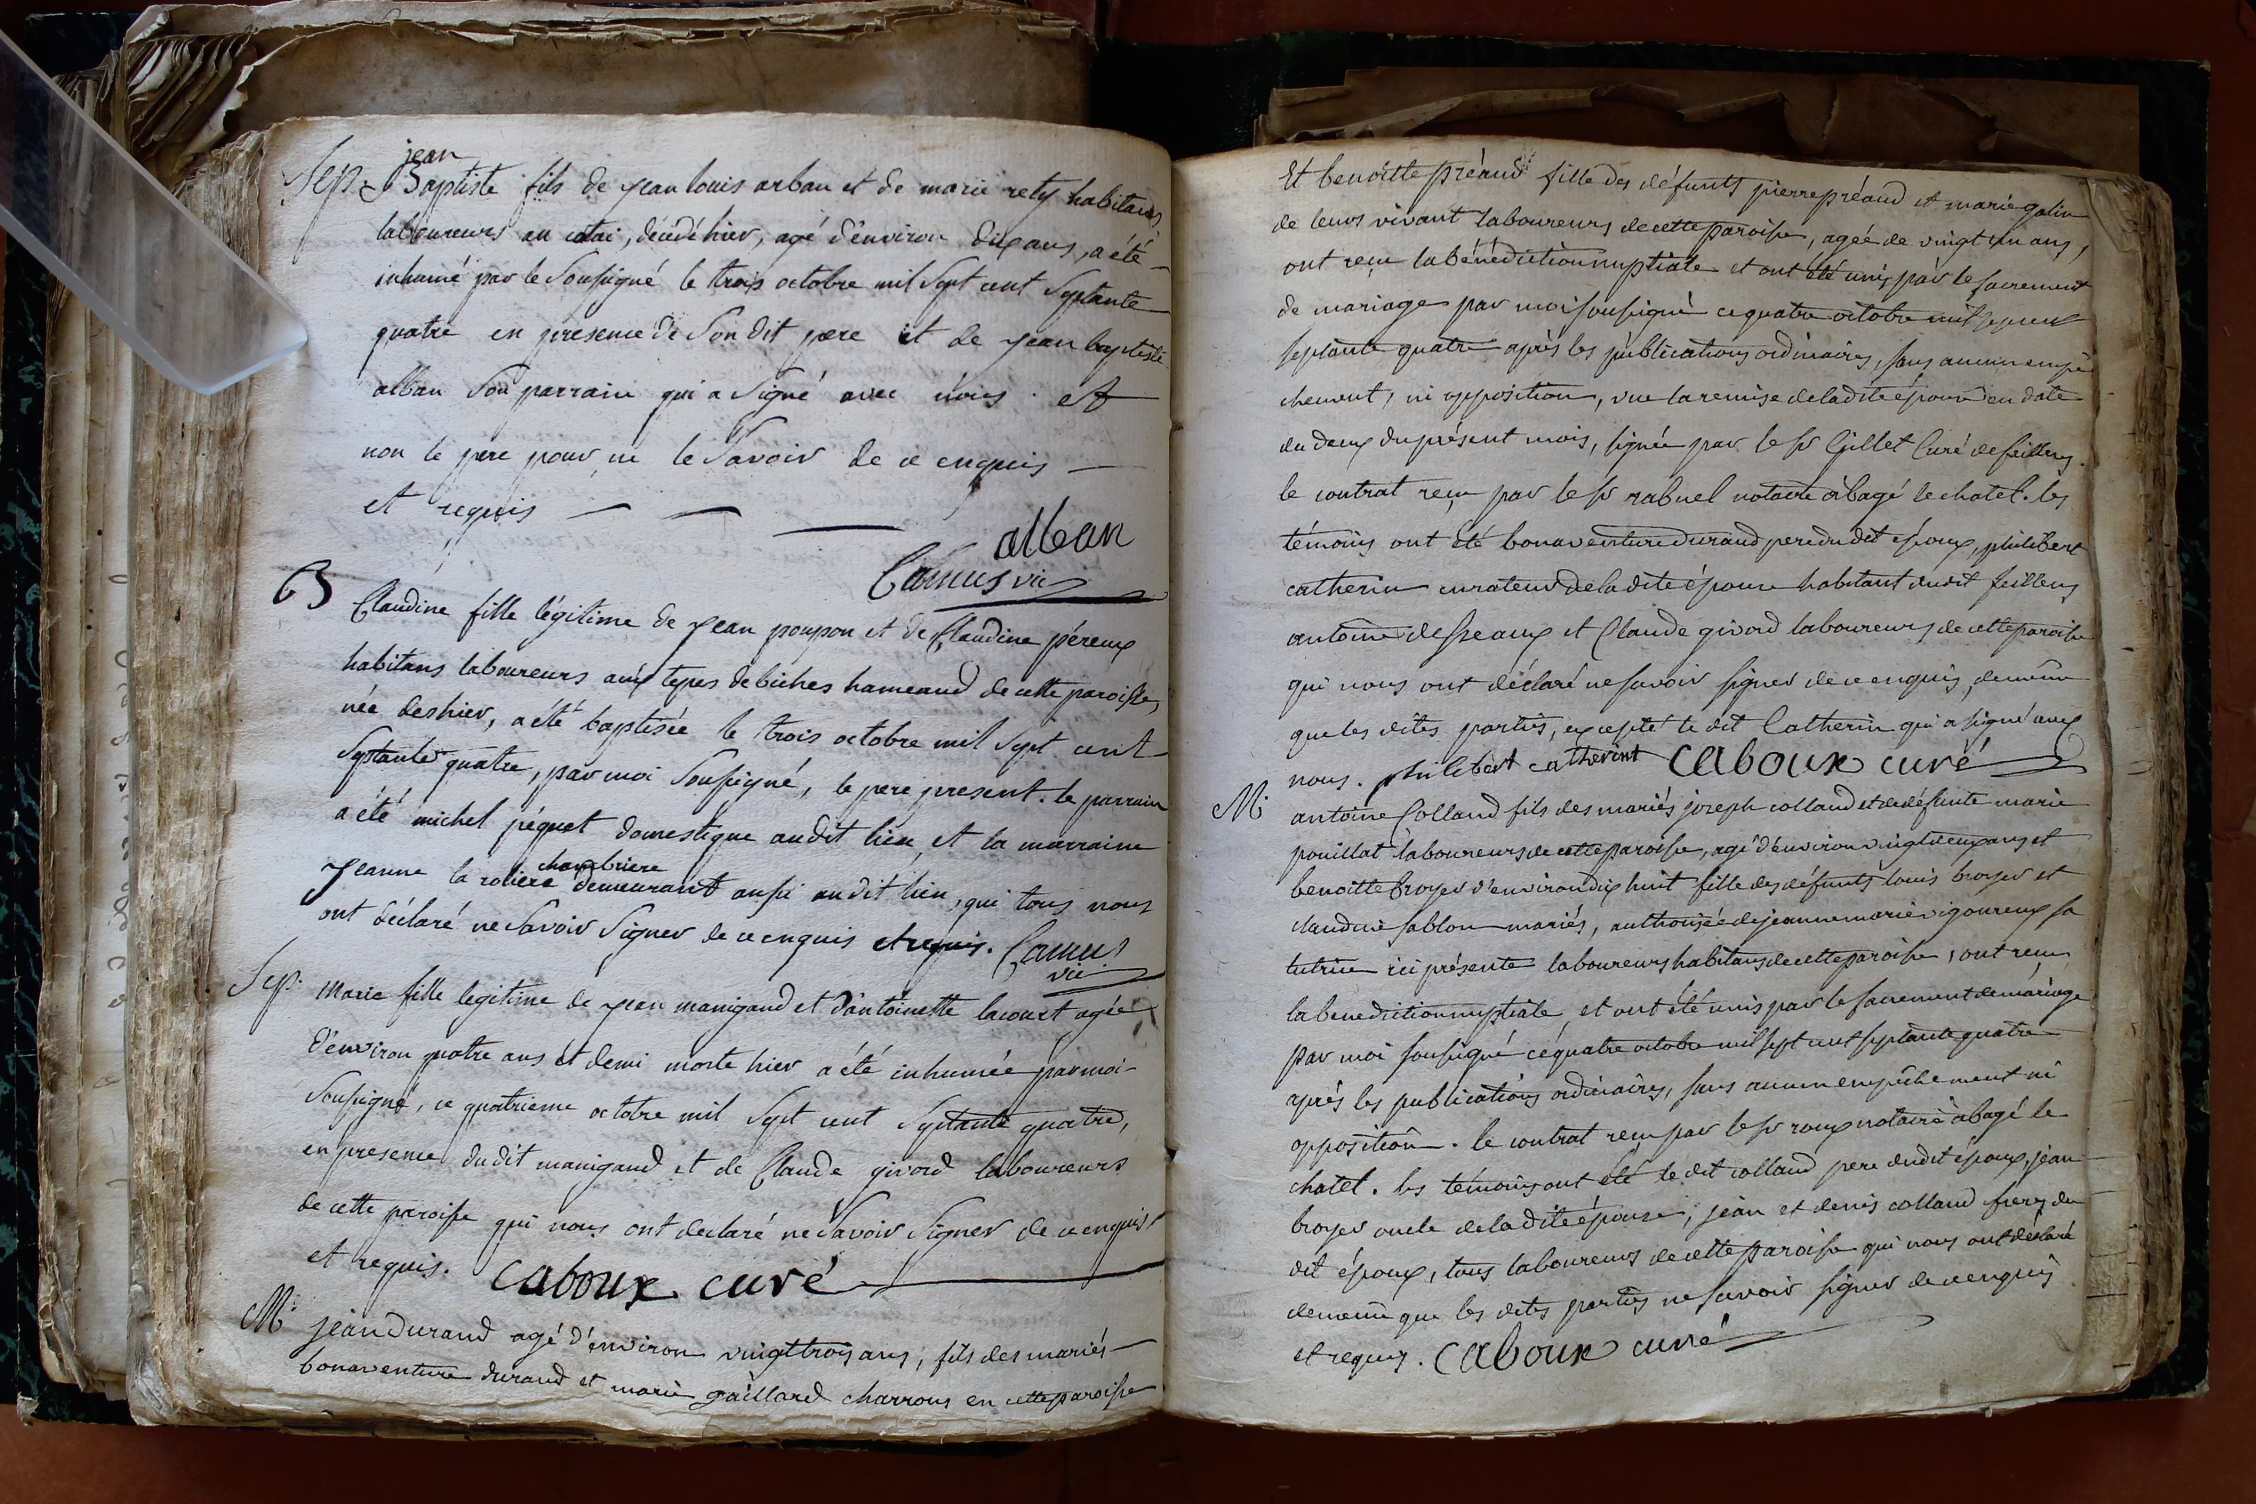 jean
Sep. Baptiste fils de jean louis arban et de marie rety habitans
laboureurs au , décédé hier, agé d'environ dix ans, a été
inhumé par le soussigné le trois octobre mil sept cent septante
quatre en presence de son dit pere et de jean baptiste
alban son parrain qui a signé avec nous. et
non le pere pour ne le savoir de ce enquis
et requis
alban
Camus vic
B Claudine fille légitime de jean poupon et de Claudine péreux
habitans laboureurs aux tepes de biches hameaud de cette paroisse,
née des hier, a été baptisée le trois octobre mil sept cent
septante quatre, par moi soussigné, le pere present. le parrain
a été michel péquet domestique audit lieu, et la marraine
chambriere
jeanne la roliere demeurant aussi audit lieu, qui tous nous
ont déclaré ne savoir signer de ce enquis et requis. Camus
vic
Sep. Marie fille legitime de jean manigand et d'antoinette lacourt agée
d'environ quatre ans et demi morte hier a été inhumée par moi
soussigné, ce quatrieme octobre mil sept cent septante quatre,
en presence dudit manigand et de Claude givord laboureurs
de cette paroisse qui nous ont declaré ne savoir signer de ce enquis
et requis. Caboux curé
M. jean Durand agé d'environ vingt trois ans, fils des mariés
bonaventure durand et marie gaillard charrons en cette paroisse
Et benoitte préaud fille des défunts pierre préaud et marie galin
de leurs vivant laboureurs de cette paroisse, agée de vingt un ans,
ont reçu la bénédiction nuptiale et ont été unis par le sacrement
de mariage par moi soussigné ce quatre octobre mil sept cent
septante quatre après les publications ordinaires, sans aucun empê
chement, ni opposition, vue la remise de la dite épouse en date
du deux du présent mois, signée par le sr Gillet Curé de feillens.
le contrat reçu par le sr rabuel notaire à bagé le chatel. les
témoins ont été bonaventure durand pere du dit époux, philibert
catherin curateur de la dite épouse habitant dudit feillens
antoine desseaux et Claude givord laboureurs de cette paroisse
qui nous ont déclaré ne savoir signer de ce enquis, de même
que les dites parties, excepté le dit Catherin qui a signé avec
nous. philibert catherint Caboux curé
M. antoine Colland fils des mariés joseph colland et de défunte marie
pouillat laboureurs de cette paroisse, agé d'environ vingt deux ans et
benoitte broyer d'environ dix huit fille des défunts louis broyer et
claudine sablon mariés, authorisée de jeanne marie vigoureux sa
tutrice ici présente laboureurs habitans de cette paroisse, ont reçu
la benediction nuptiale et ont été unis par le sacrement de mariage
par moi soussigné ce quatre octobre mil sept cent septante quatre
après les publications ordinaires, sans aucun empêchement ni
opposition. le contrat reçu par le sr roux notaire à bagé le
chatel. les témoins ont été le dit colland pere dudit époux, jean
broyer oncle de la dite épouse, jean et denis colland freres du
dit époux, tous laboureurs de cette paroisse qui nous ont déclaré
de même que les dites parties ne savoir signer de ce enquis
et requis. Caboux curé